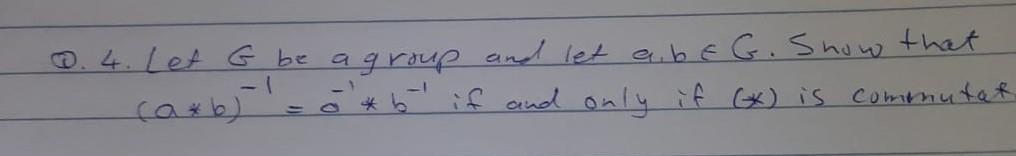 Q. 4. Let G be a group and let a,b ∈ G. Show that
(a*b)⁻¹ = a⁻¹ * b⁻¹ if and only if (*) is commutat